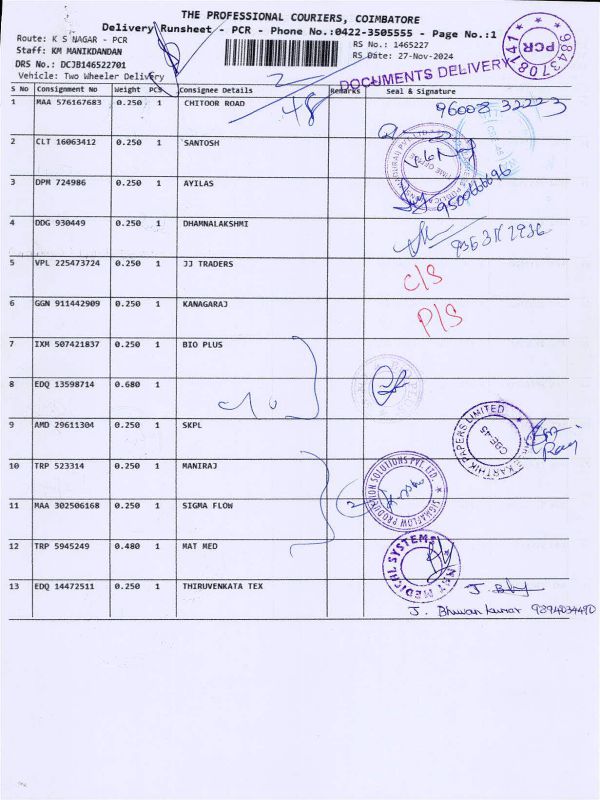 THE PROFESSIONAL COURIERS, COIMBATORE
Delivery Runsheet - PCR - Phone No.:0422-3505555 - Page No.:1
Route: K S NAGAR - PCR
RS No.: 1465227
Staff: KM MANIKDANDAN
RS Date: 27-Nov-2024
DRS No.: DCJB146522701
Vehicle: Two Wheeler Delivery
DOCUMENTS DELIVERY
9843708141 PCR
S No Consignment No Weight PCS Consignee Details Remarks Seal & Signature
1 MAA 576167683 0.250 1 CHITOOR ROAD 48 96008 32223
2 CLT 16063412 0.250 1 SANTOSH
3 DPM 724986 0.250 1 AYILAS 9500666696
4 DDG 930449 0.250 1 DHAMNALAKSHMI
5 VPL 225473724 0.250 1 JJ TRADERS C/S
6 GGN 911442909 0.250 1 KANAGARAJ P/S
7 IXM 507421837 0.250 1 BIO PLUS
8 EDQ 13598714 0.680 1
9 AMD 29611304 0.250 1 SKPL
KARTHIK PAPERS LIMITED CBE-45
10 TRP 523314 0.250 1 MANIRAJ
11 MAA 302506168 0.250 1 SIGMA FLOW 2
SIGMAFLOW PRODUCTION SOLUTIONS PVT LTD
12 TRP 5945249 0.480 1 MAT MED
MEDICAL SYSTEMS
13 EDQ 14472511 0.250 1 THIRUVENKATA TEX
J. Bhuvan kumar 9894034490